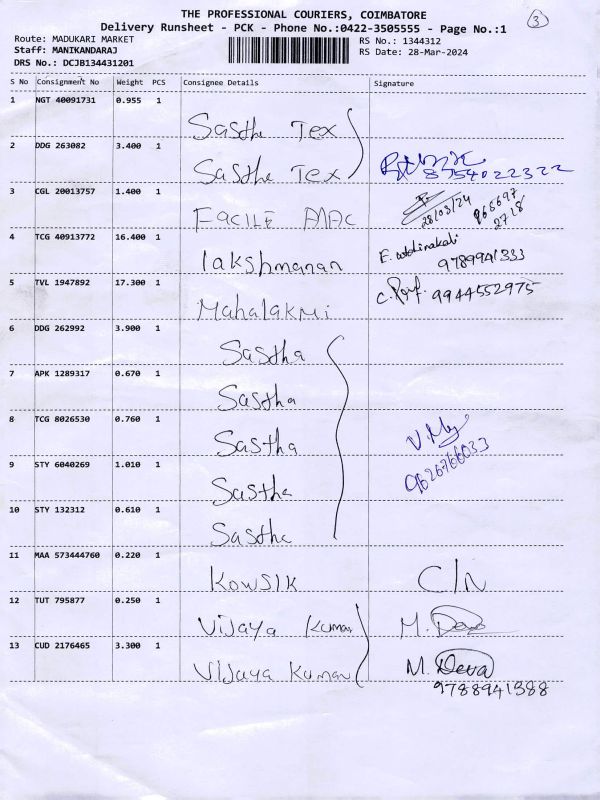 THE PROFESSIONAL COURIERS, COIMBATORE
Delivery Runsheet - PCK - Phone No.:0422-3505555 - Page No.:1
3
Route: MADUKARI MARKET
RS No.: 1344312
Staff: MANIKANDARAJ
RS Date: 28-Mar-2024
DRS No.: DCJB134431201
S No Consignment No Weight PCS Consignee Details Signature
1 NGT 40091731 0.955 1 Sastha Tex
2 DDG 263082 3.400 1 Sastha Tex 8754022322
3 CGL 20013757 1.400 1 FACILE MAC 28/03/24
4 TCG 40913772 16.400 1 lakshmanan 9789941333
5 TVL 1947892 17.300 1 Mahalakmi 9944552975
6 DDG 262992 3.900 1 Sastha
7 APK 1289317 0.670 1 Sastha
8 TCG 8026530 0.760 1 Sastha
9 STY 6040269 1.010 1 Sastha 9626766033
10 STY 132312 0.610 1 Sastha
11 MAA 573444760 0.220 1 KOWSIK C/N
12 TUT 795877 0.250 1 Vijaya Kumar M. Deva
13 CUD 2176465 3.300 1 Vijaya Kumar M. Deva
9788941388